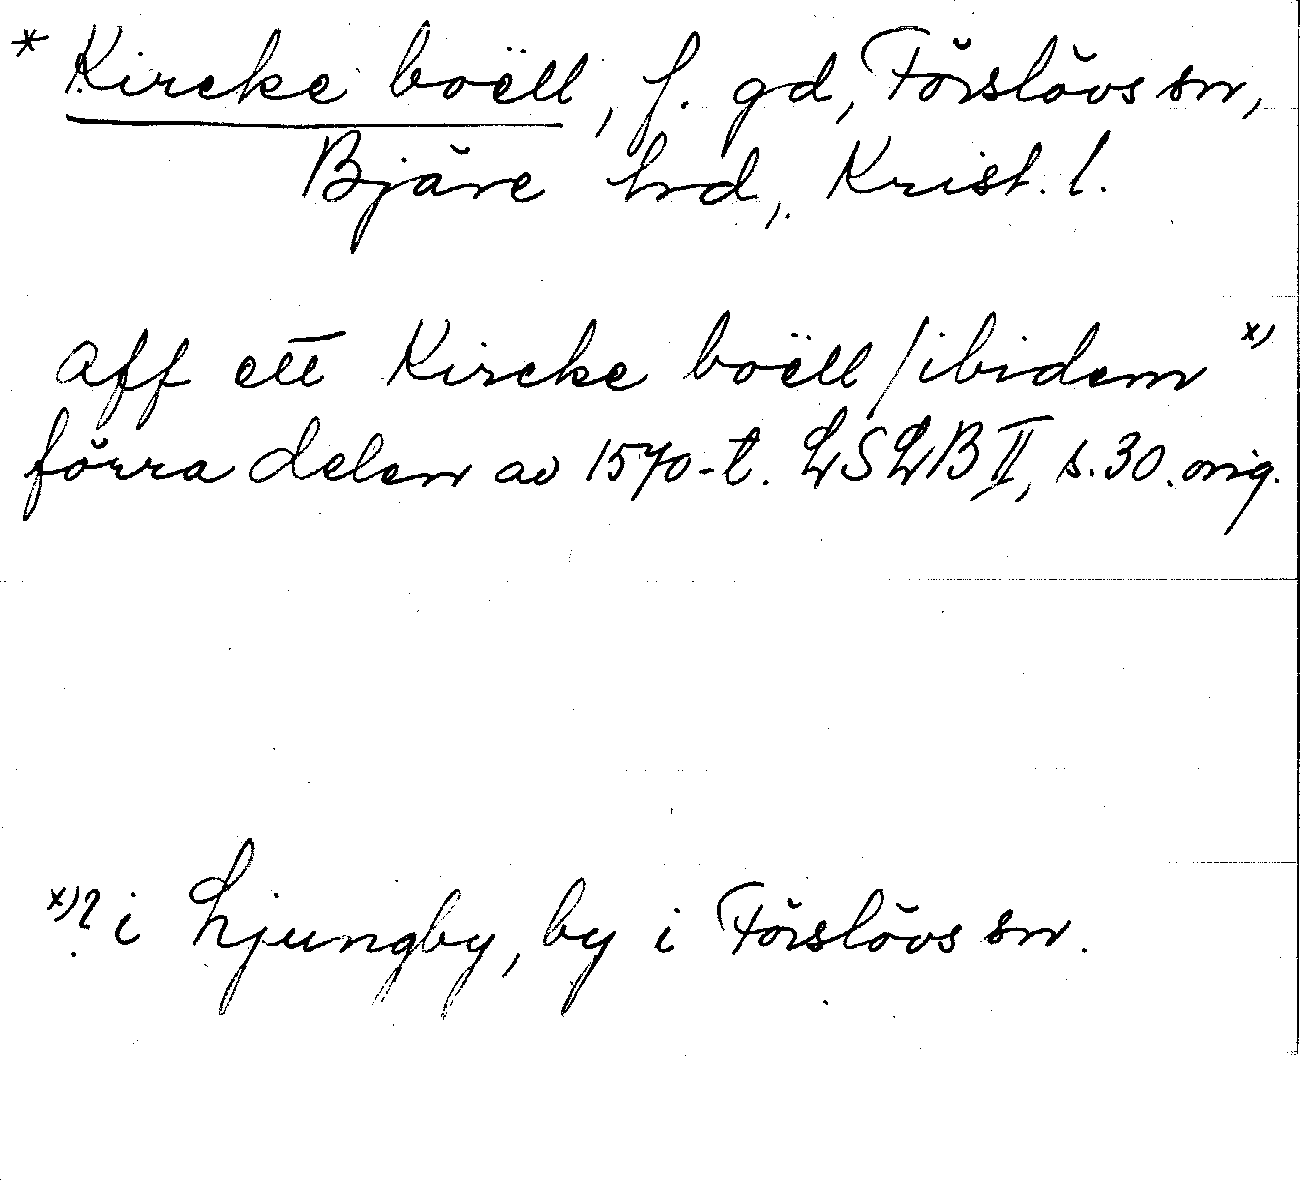 * Kircke boëll, f. gd, Förslövs sn,
Bjäre hrd, Krist. l.
Aff ett Kircke boëll/ibidem x)
förra delen av 1570-t. LSLB II, s. 30. orig.
x)? i Ljungby, by i Förslövs sn.